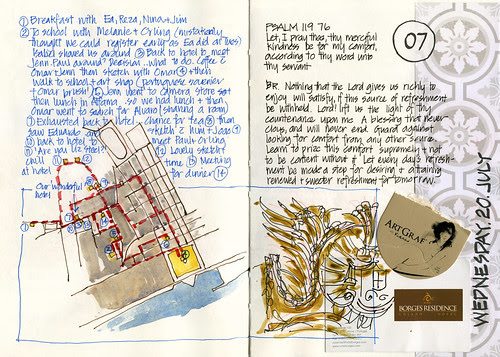 ① Breakfast with Ea, Reza, Nina & Jim
② To school with Melanie & Orling (mistakenly
thought we could register early as Ea did at Tues)
Isabel showed us around ③ Back to hotel to meet
Jenn. Paul around? Decision...what to do. Coffee c
Omar & Jenn then sketch with Omar ④ & then
walk to school & art shop (portuguese souvenier
& Omar brush) ⑤ Jenn went to camera store
then lunch in Alfama. so we had lunch & then
Omar went to search for Alvaro (sharing a room)
Exhausted back to hotel
for tea ⑧ then
saw Eduardo
sketch
him & Joao
⑩ back to hotel to
meet Paul & Orling
⑪ Are you Liz Steel?
⑫ Lovely sketch
chill
time ⑬ Meeting
at hotel
for dinner ⑭
Our wonderful
hotel
PSALM 119.76
Let, I pray thee, thy merciful
kindness be for my comfort,
according to thy word unto
thy servant
07
BR. Nothing that the Lord gives us richly to
enjoy will satisfy, if this source of refreshment
be withheld. Lord lift us the light of thy
countenance upon me. A blessing that never
cloys, and will never end. Guard against
looking for comfort from any other source.
Learn to prize this comfort supremely & not
to be content without it. Let every day's refresh-
ment be made a step for desiring & attaining
renewed & sweeter refreshment for tomorrow.
ARTGRAF
BORGES RESIDENCE
WEDNESDAY, 20 JULY